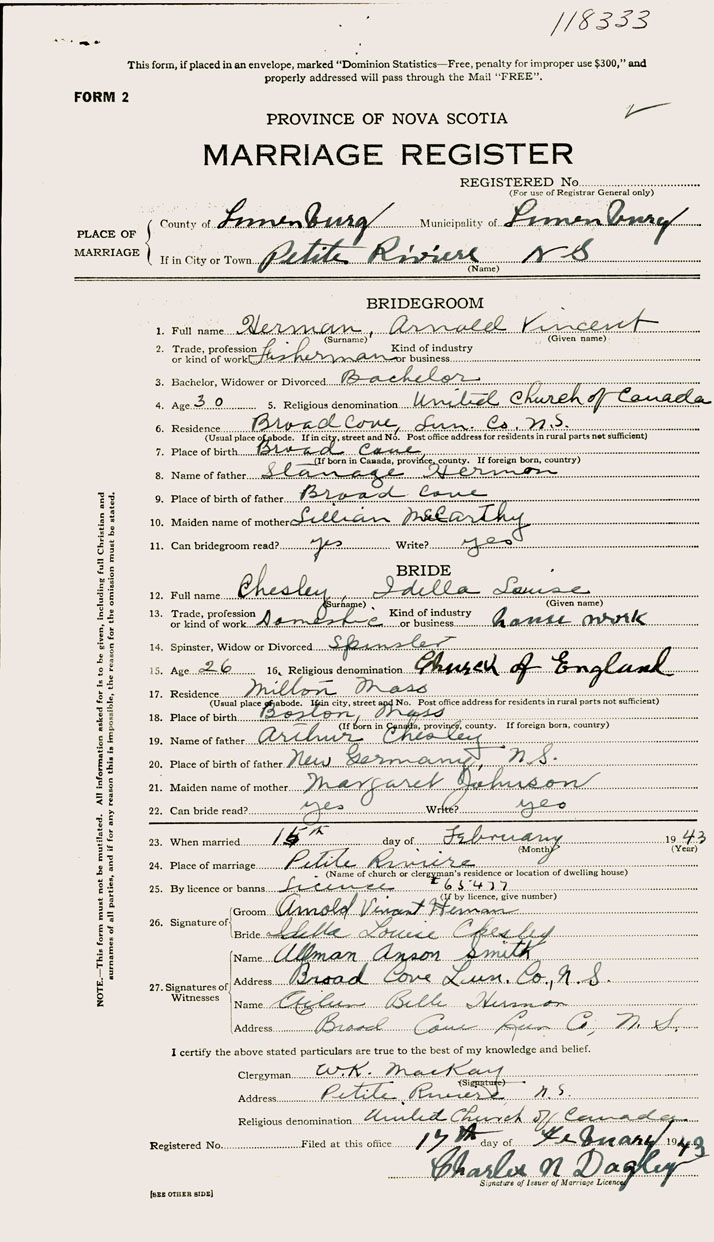 118333
This form, if placed in an envelope, marked "Dominion Statistics—Free, penalty for improper use $300," and
properly addressed will pass through the Mail "FREE".
FORM 2
PROVINCE OF NOVA SCOTIA
MARRIAGE REGISTER
REGISTERED No
(For use of Registrar General only)
PLACE OF MARRIAGE
County of Lunenburg Municipality of Lunenburg
If in City or Town Petite Riviere N S
(Name)
BRIDEGROOM
1. Full name Herman, Arnold Vincent
(Surname) (Given name)
2. Trade, profession or kind of work Fisherman Kind of industry or business
3. Bachelor, Widower or Divorced Bachelor
4. Age 30 5. Religious denomination United Church of Canada
6. Residence Broad Cove, Lun. Co. N.S.
(Usual place of abode. If in city, street and No. Post office address for residents in rural parts not sufficient)
7. Place of birth Broad Cove
(If born in Canada, province, county. If foreign born, country)
8. Name of father Stanage Hermon
9. Place of birth of father Broad Cove
10. Maiden name of mother Lillian McCarthy
11. Can bridegroom read? yes Write? yes
BRIDE
12. Full name Chesley, Idella Louise
(Surname) (Given name)
13. Trade, profession or kind of work Domestic Kind of industry or business house work
14. Spinster, Widow or Divorced Spinster
15. Age 26 16. Religious denomination Church of England
17. Residence Milton Mass
(Usual place of abode. If in city, street and No. Post office address for residents in rural parts not sufficient)
18. Place of birth Boston, Mass
(If born in Canada, province, county. If foreign born, country)
19. Name of father Arthur Chesley
20. Place of birth of father New Germany, N.S.
21. Maiden name of mother Margaret Johnson
22. Can bride read? yes Write? yes
23. When married 15th day of February 1943
(Month) (Year)
24. Place of marriage Petite Riviere
(Name of church or clergyman's residence or location of dwelling house)
25. By licence or banns Licence #65477
(If by licence, give number)
26. Signature of
Groom Arnold Vincent Herman
Bride Idella Louise Chesley
27. Signatures of Witnesses
Name Allman Anson Smith
Address Broad Cove Lun. Co., N.S.
Name Belle Hermon
Address Broad Cove Lun Co, N.S.
I certify the above stated particulars are true to the best of my knowledge and belief.
Clergyman W.K. MacKay
(Signature)
Address Petite Riviere, N.S.
Religious denomination United Church of Canada
Registered No. Filed at this office 17th day of February 1943
Charles N Dagley
Signature of Issuer of Marriage Licence
[SEE OTHER SIDE]
NOTE.—This form must not be mutilated. All information asked for is to be given, including full Christian and
surnames of all parties, and if for any reason this is impossible, the reason for the omission must be stated.